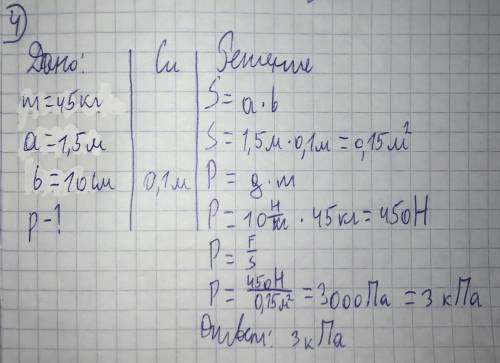 4)
Дано: Си Решение
m=45кг S=a·b
a=1,5м S=1,5м·0,1м=0,15м²
b=10см 0,1м P=g·m
p-? P=10 Н/кг · 45кг=450Н
P=F/S
P=450Н/0,15м²=3000Па=3кПа
Ответ: 3кПа